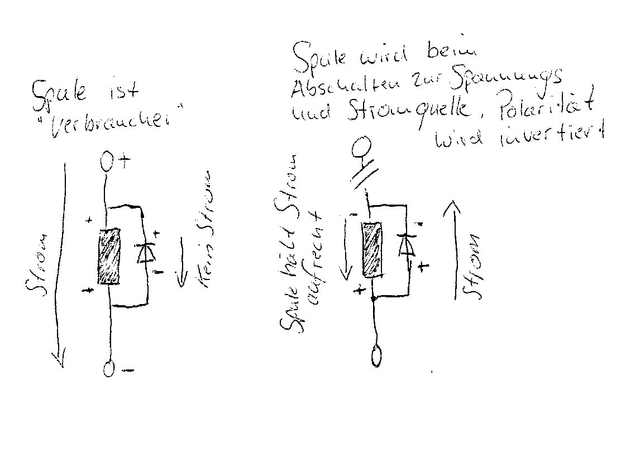 Spule ist
"Verbraucher"
+
Strom
+
-
+
-
Kein Strom
-
Spule wird beim
Abschalten zur Spannungs
und Stromquelle, Polarität
wird invertiert
Spule hält Strom
aufrecht
-
+
-
+
Strom